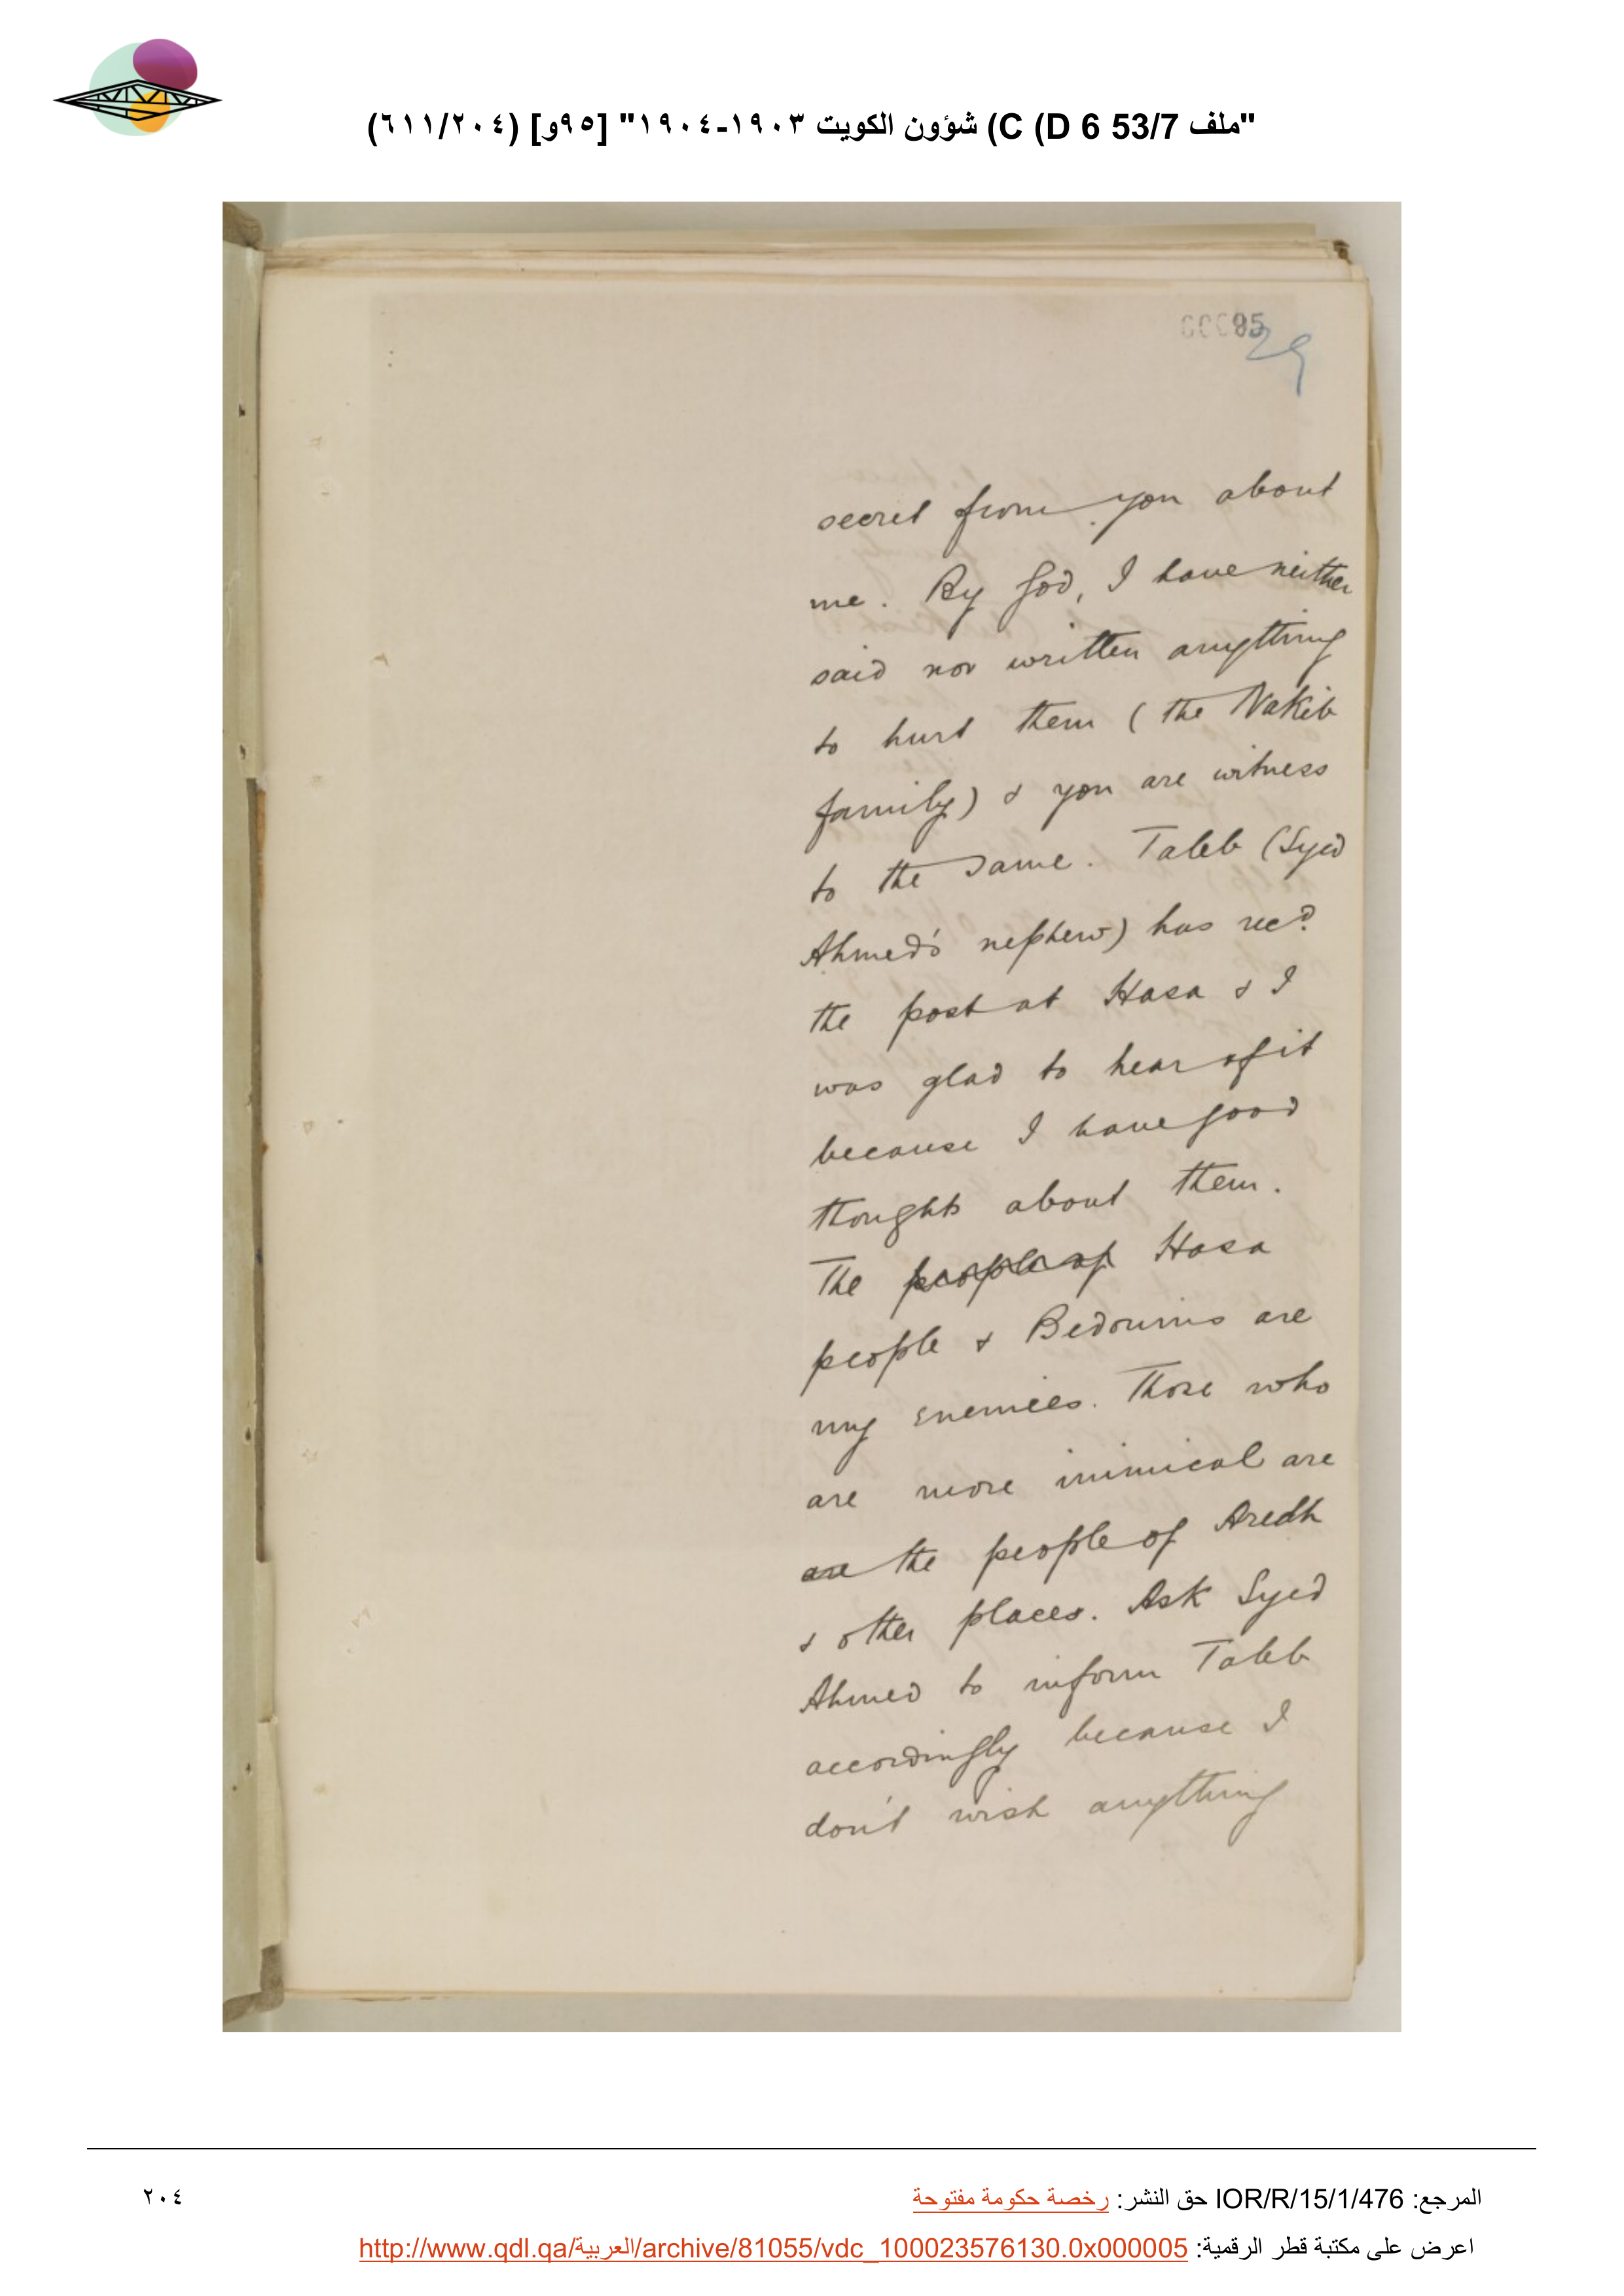 "ملف 53/7 D 6) C) شؤون الكويت ١٩٠٣-١٩٠٤" [٩٥و] (٦١١/٢٠٤)
00095
29
secret from you about
me. By God, I have neither
said nor written anything
to hurt them (the Nakib
family) & you are witness
to the same. Taleb (Syed
Ahmed's nephew) has recd.
the post at Hasa & I
was glad to hear of it
because I have good
thoughts about them.
The people of Hasa
people & Bedouins are
my enemies. Those who
are more inimical are
are the people of Aredh
& other places. Ask Syed
Ahmed to inform Taleb
accordingly because I
don't wish anything
المرجع: IOR/R/15/1/476 حق النشر: رخصة حكومة مفتوحة
٢٠٤
اعرض على مكتبة قطر الرقمية: http://www.qdl.qa/العربية/archive/81055/vdc_100023576130.0x000005